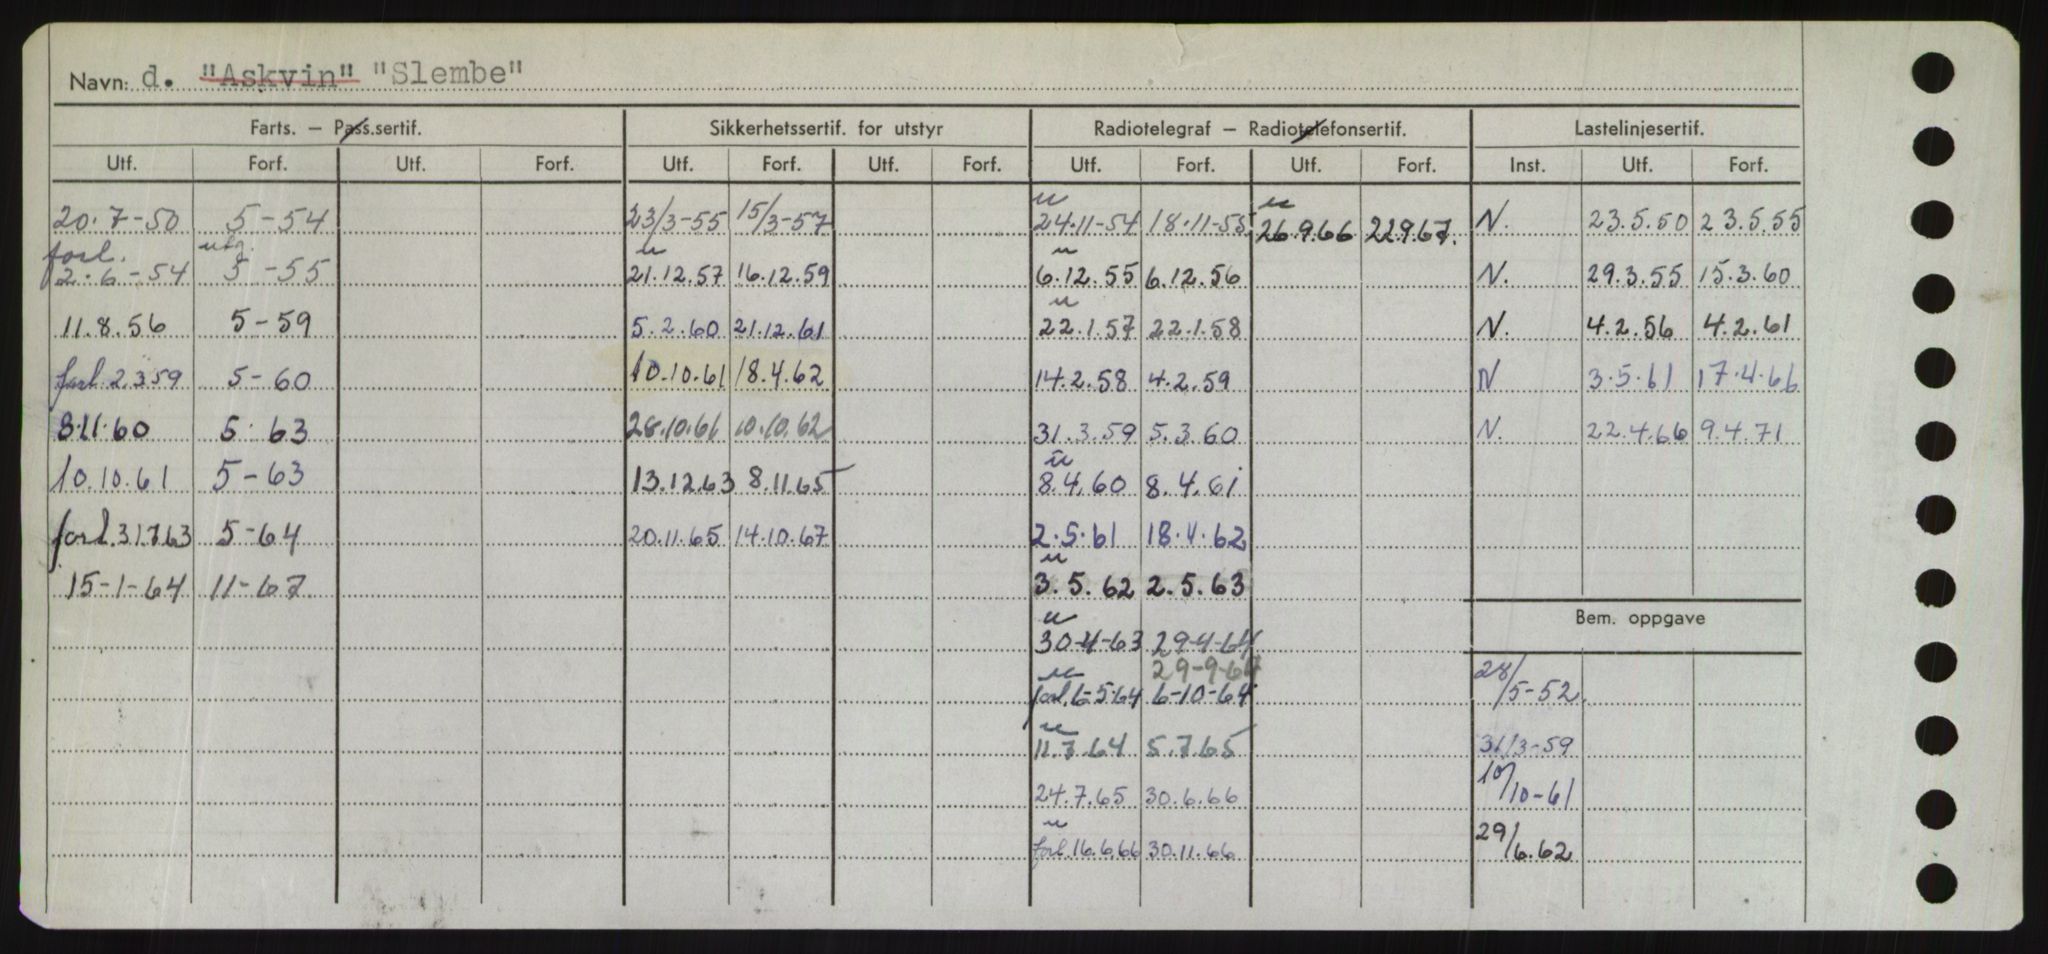 Navn: d. "Askvin" "Slembe"
Farts. – Pass.sertif. Sikkerhetssertif. for utstyr Radiotelegraf – Radiotelefonsertif. Lastelinjesertif.
Utf. Forf. Utf. Forf. Utf. Forf. Utf. Forf. Utf. Forf. Utf. Forf. Inst. Utf. Forf.
u u
20.7-50 5-54 23/3-55 15/3-57 24.11-54 18.11-55 26.9.66 22.9.67. N. 23.5.50 23.5.55
forl. utg. u u
2.6-54 5-55 21.12.57 16.12.59 6.12.55 6.12.56 N. 29.3.55 15.3.60
u
11.8.56 5-59 5.2.60 21.12.61 22.1.57 22.1.58 N. 4.2.56 4.2.61
forl. 2.3.59 5-60 10.10.61 18.4.62 14.2.58 4.2.59 N 3.5.61 17.4.66
8.11.60 5.63 28.10.61 10.10.62 31.3.59 5.3.60 N. 22.4.66 9.4.71
u
10.10.61 5-63 13.12.63 8.11.65 8.4.60 8.4.61
forl. 31.7.63 5-64 20.11.65 14.10.67 2.5.61 18.4.62
u
15-1-64 11-67. 3.5.62 2.5.63
u
Bem. oppgave
30-4-63 29-4-64
29-9-64
u
forl. 6-5-64 6-10-64 28/5-52.
u
11.7.64 5.7.65 31/3-59
24.7.65 30.6.66 10/10-61
u
forl. 16.6.66 30.11.66 29/6.62